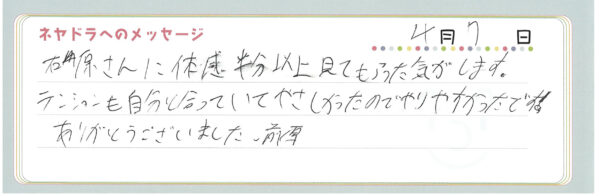 ネヤドラへのメッセージ
4月7日
原さんに体感半分以上見てもらった気がします。
テンションも自分と合っていてやさしかったのでやりやすかったです
ありがとうございました。